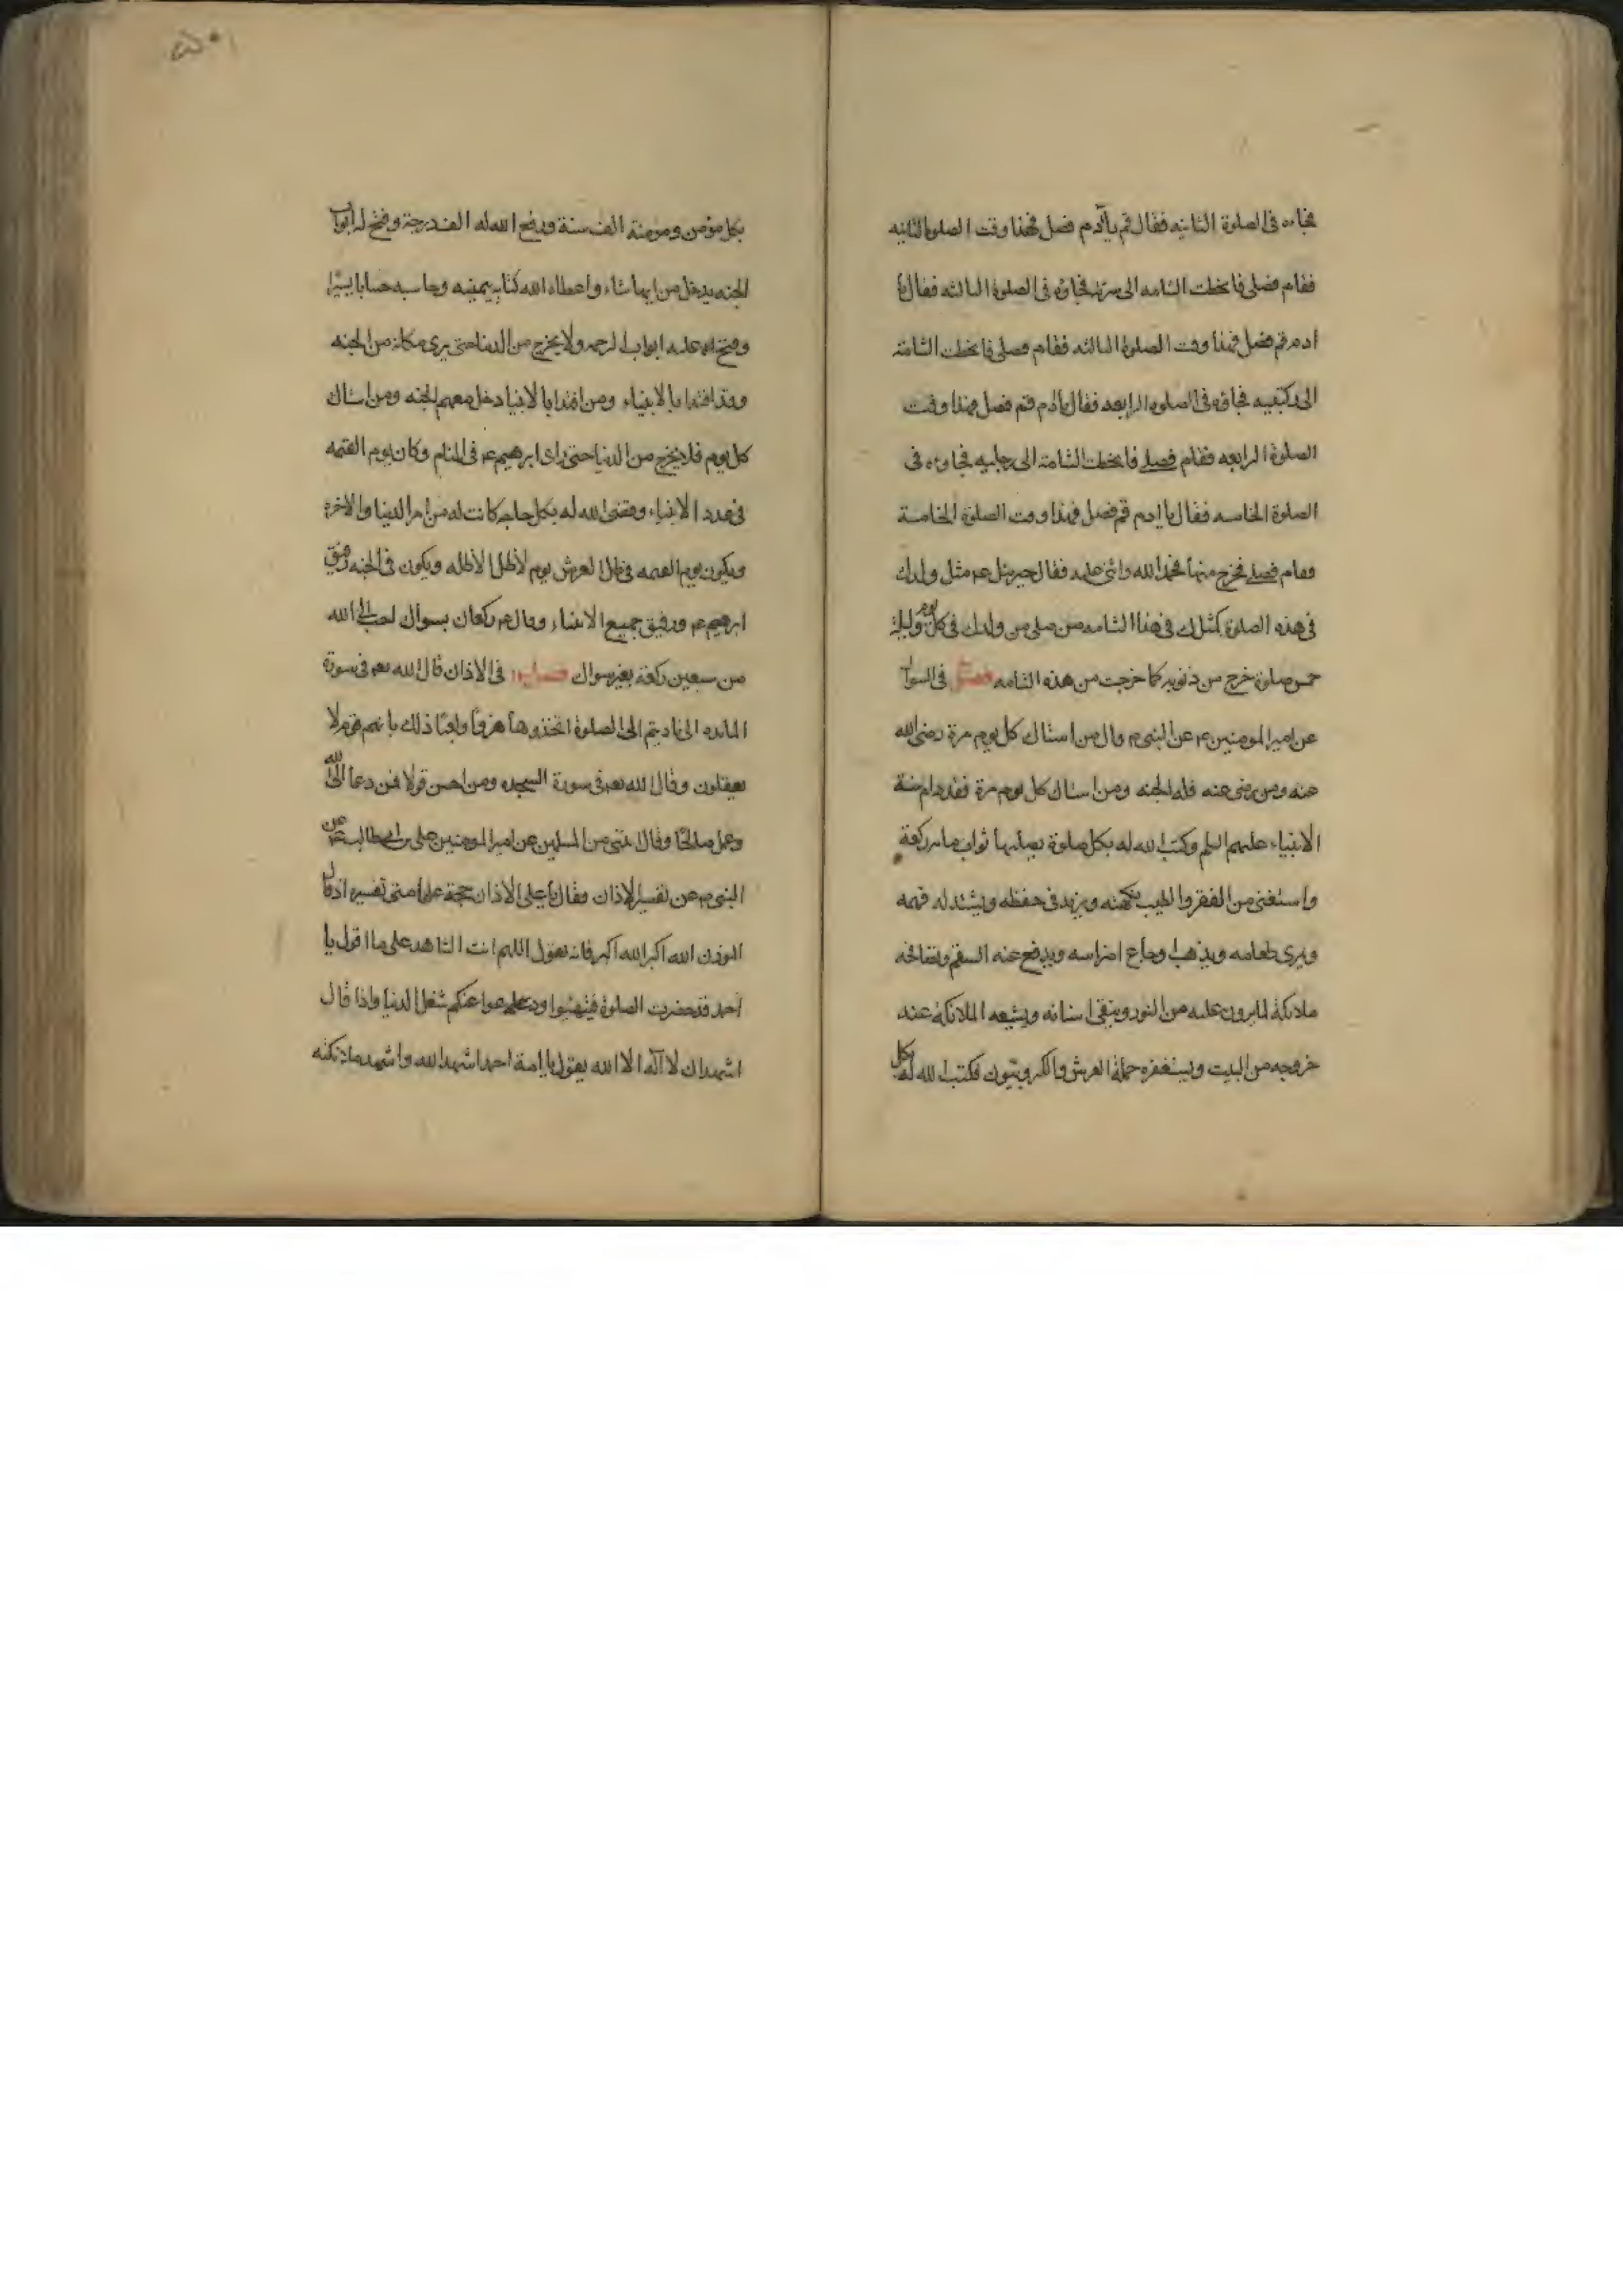 فجاءه فى الصلوة الثانيه فقال قم يا آدم فصل فهذا وقت الصلوة الثانيه
فقام فصلى فانحطت الشامه الى سرته فجاؤه فى الصلوة الثالثه فقال يا
ادم قم فصل فهذا وقت الصلوة الثالثه فقام فصلى فانحطت الشامة
الى ركبتيه فجاؤه فى الصلوة الرابعه فقال يا ادم قم فصل فهذا وقت
الصلوة الرابعه فقام فصلى فانحطت الشامة الى رجليه فجاوءه فى
الصلوة الخامسه فقال يا ادم قم فصل فهذا وقت الصلوة الخامسة
فقام فصلى فخرج منها فحمد الله واثنى عليه فقال جبرئيل عم مثل ولدك
فى هذه الصلوة كمثلك فى هذا الشامه من صلى من ولدك فى كل يوم وليلة
خمس صلوة خرج من ذنوبه كما خرجت من هذه الشامه فصل فى السواك
عن امير المومنين عم عن النبى م قال من استاك كل يوم مرة رضى الله
عنه ومن رضى عنه فله الجنه ومن استاك كل يوم مرة فقد دام سنة
الانبياء عليهم السلم وكتب الله له بكل صلوة يصليها ثواب مايه ركعة
واستغنى من الفقر والطيب نكهته ويزيد فى حفظه ويشتد له فهمه
ويمرى طعامه ويذهب وجاع اضراسه ويدفع عنه السقم وتصافحه
ملائكة لما يرون عليه من النور وينقى اسنانه ويشيعه الملائكة عند
خروجه من البيت ويستغفره حملة العرش والكروبيون فكتب الله له بكل
بكل مؤمن ومومنة الف سنة ورفع الله له الف درجة وفتح له ابواب
الجنه يدخل من ايها شاء واعطاه الله كتابه بيمينه وحاسبه حسابا يسيرا
وفتح الله عليه ابواب الرحمه ولا يخرج من الدنيا حتى يرى مكانه من الجنه
وقد اقتدا بالانبياء ومن اقتدا بالانبيا دخل معهم الجنه ومن استاك
كل يوم فلا يخرج من الدنيا حتى راى ابرهيم عم فى المنام وكان يوم القيمه
فى عدد الانبياء وقضى الله له بكل حاجه كانت له من امر الدنيا والاخره
ويكون يوم القيمه فى ظل العرش يوم لا ظل الا ظله ويكون فى الجنه رفيق
ابرهيم عم ورفيق جميع الانبياء وقال عم ركعتان بسواك احب الى الله
من سبعين ركعة بغير سواك فى الاذان قال الله تعم فى سورة
المايده اذا ناديتم الى الصلوة اتخذوها هزوًا ولعبًا ذلك بانهم قوم لا
يعقلون وقال الله تعم فى سورة السجده ومن احسن قولا فمن دعا الى الله
وعمل صالحًا وقال اننى من المسلمين عن امير المومنين على بن ابى طالب عم عن
النبى م عن تفسير الاذان وقال يا على الاذان حجة على امتى تفسيره اذ قال
الموذن الله اكبر الله اكبر فانه يقول اللهم انت الشاهد على ما اقول يا
احمد قد حضرت الصلوة فتهيئوا ودعوا عنكم شغل الدنيا واذا قال
اشهد ان لا اله الا الله يقول يا امة احمد اشهد الله واشهد ملائكته